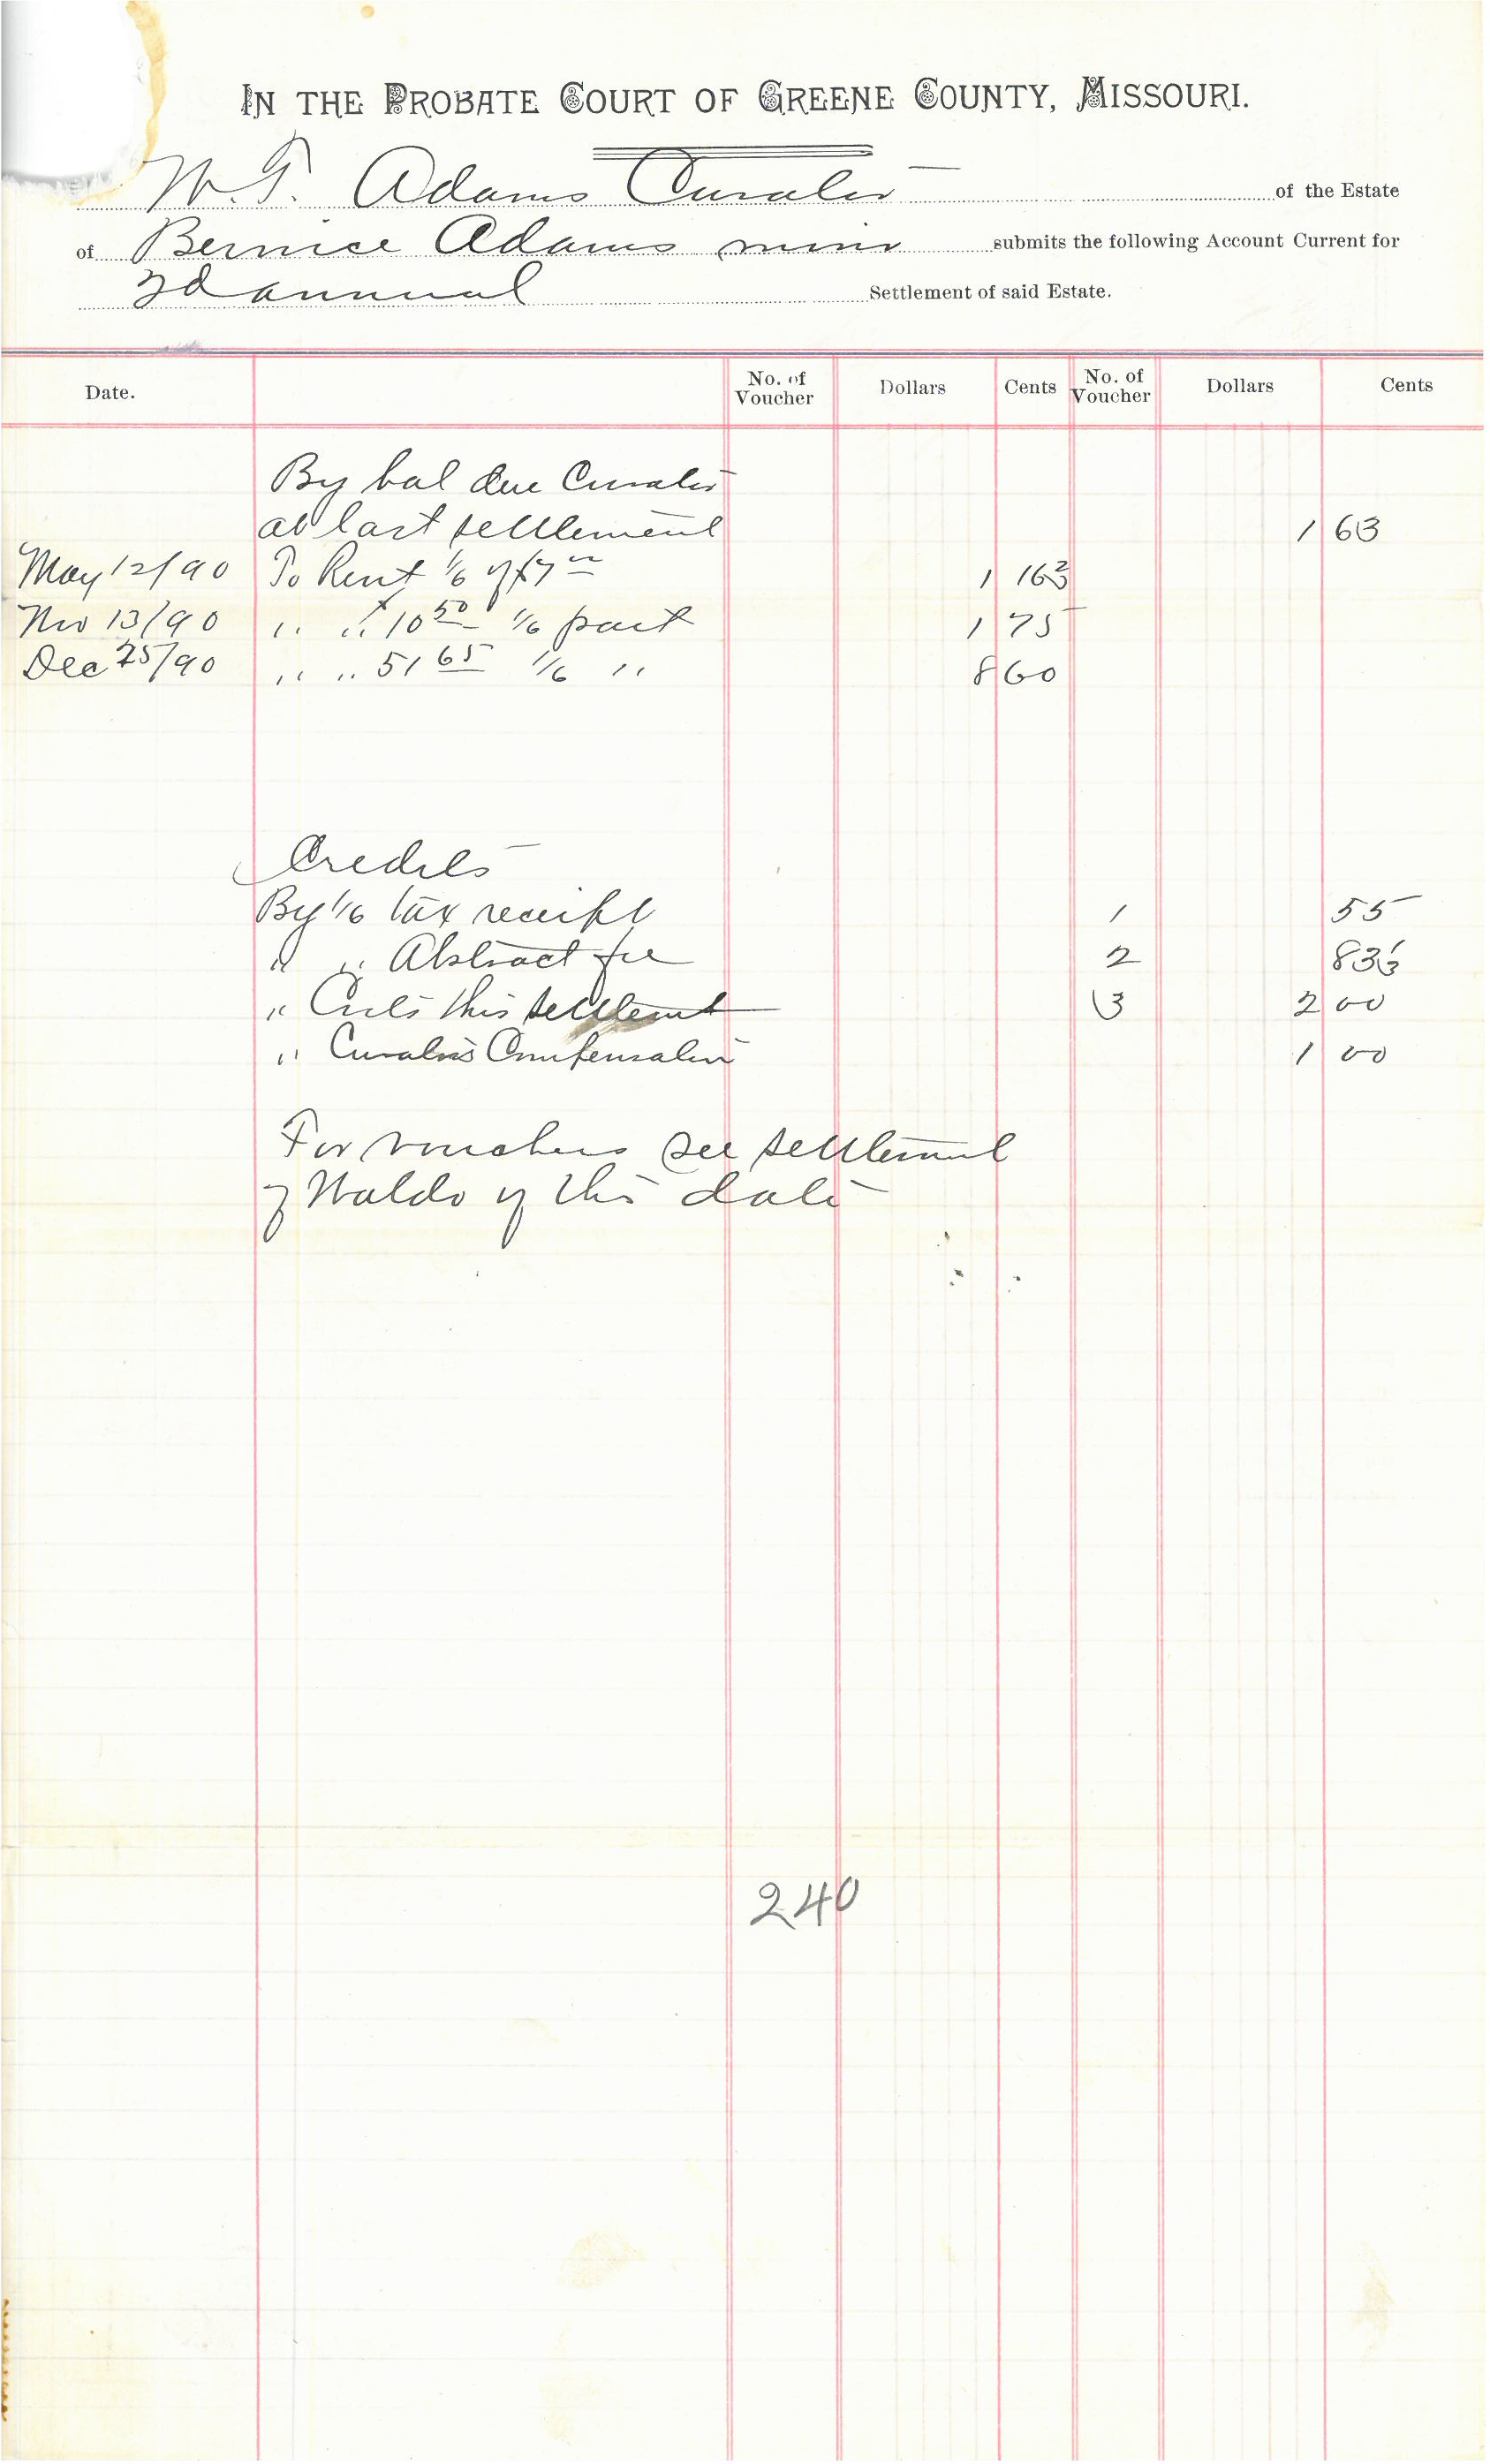 IN THE PROBATE COURT OF GREENE COUNTY, MISSOURI.
W. T. Adams Curator of the Estate
of Bernice Adams minor submits the following Account Current for
2d annual Settlement of said Estate.
Date. No. of Voucher Dollars Cents No. of Voucher Dollars Cents
By bal due Curator
at last settlement 1 63
May 12/90 To Rent 1/6 of $7 00 1 16 2/3
Nov 13/90 " " 10 50 1/6 part 1 75
Dec 25/90 " " 51 65 1/6 " 8 60
Credits
By 1/6 tax receipt 1 55
" " Abstract fee 2 83 1/3
" Costs this settlement 3 2 00
" Curators Compensation 1 00
For vouchers see settlement
of Waldo of this date
240